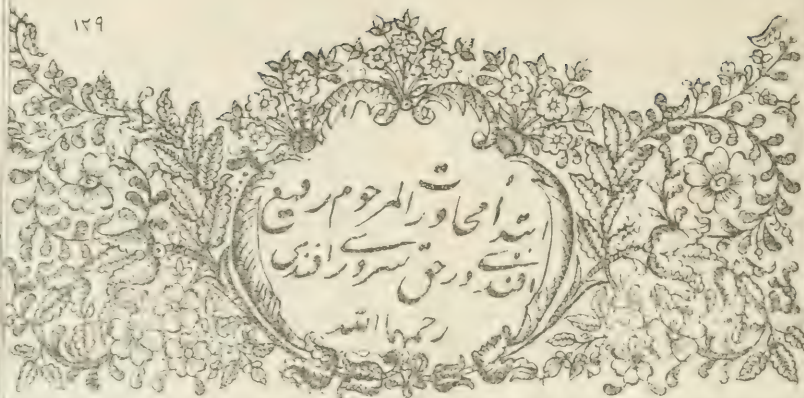 ١٢٩
ابتدأ محاورات المرحوم رفيع
افندی در حق سروری افندی
رحمهما الله